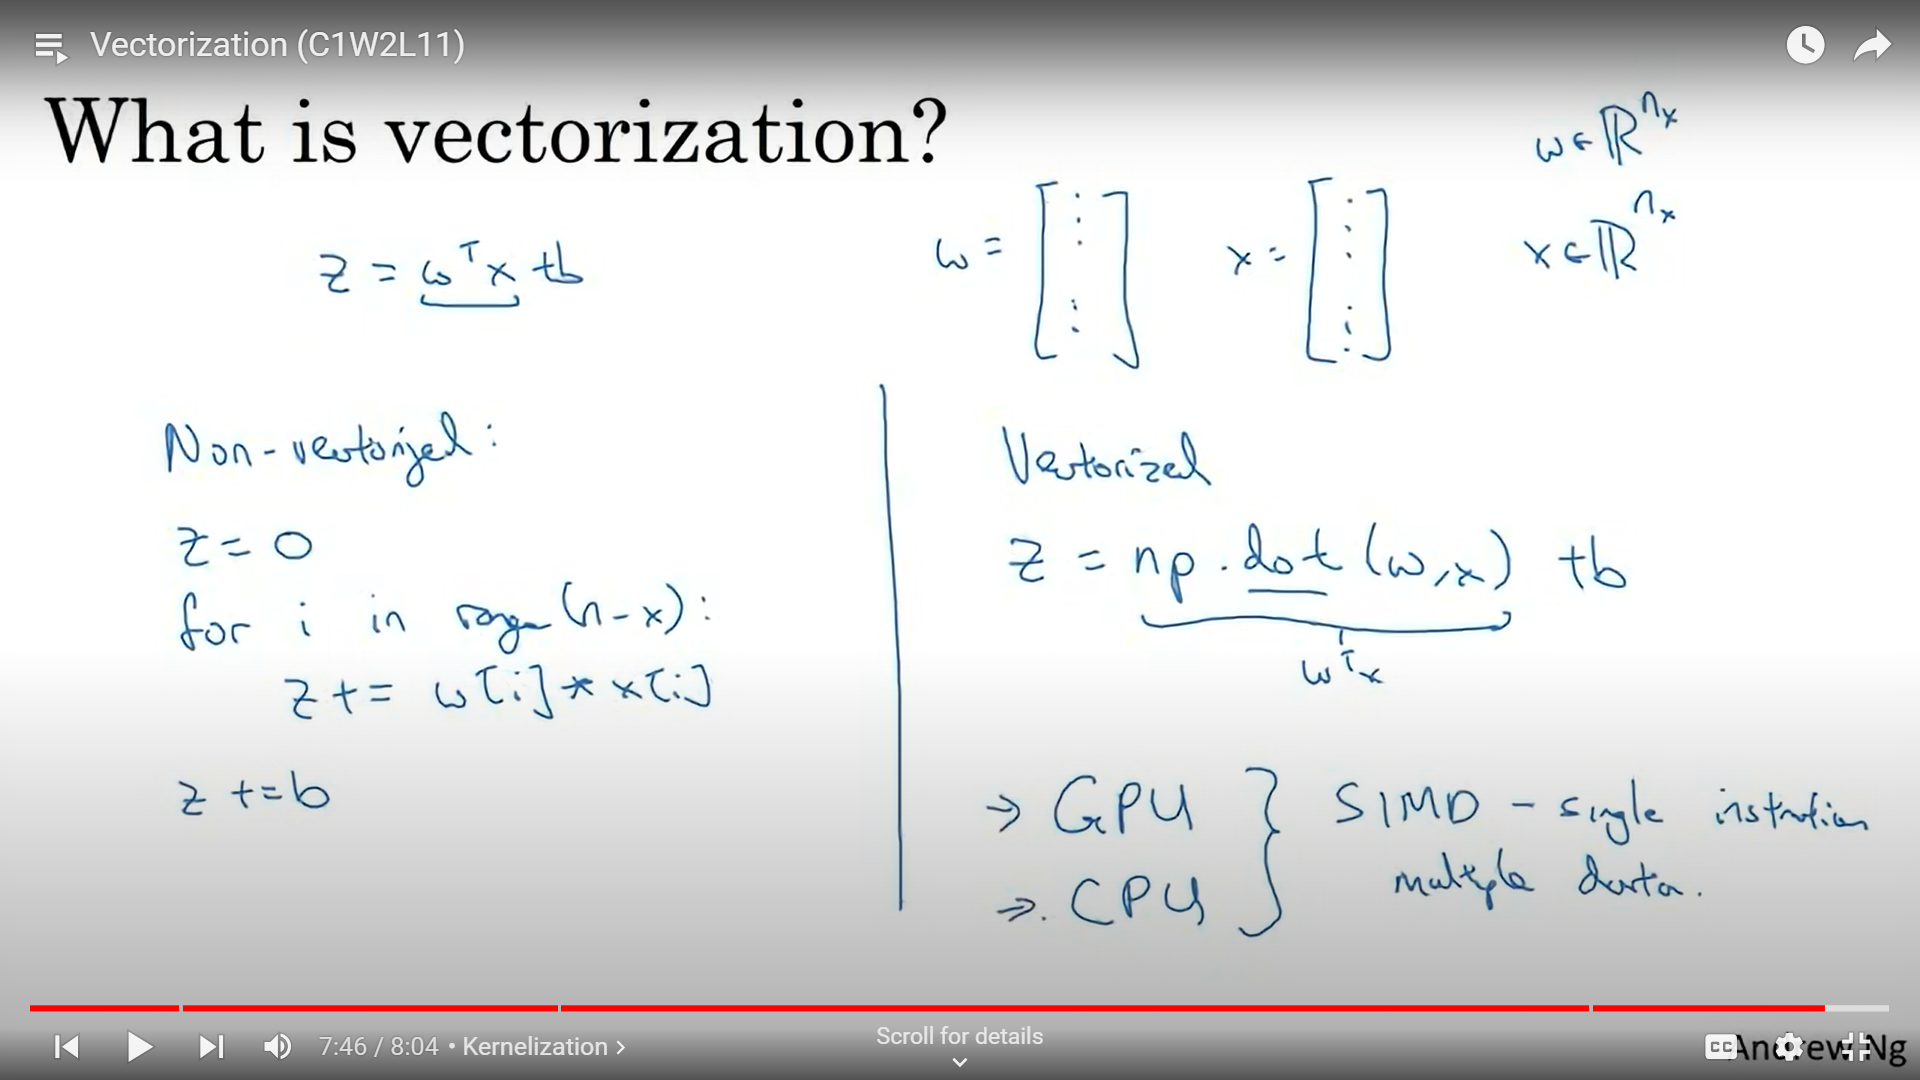 Vectorization (C1W2L11)
What is vectorization?
w ∈ ℝ^{n_x}
x ∈ ℝ^{n_x}
z = w^T x + b
w = [⋮]
x = [⋮]
Non-vectorized:
z = 0
for i in range(n-x):
z += w[i] * x[i]
z += b
Vectorized
z = np.dot(w,x) + b
w^T x
→ GPU } SIMD - single instruction
→ CPU multiple data.
7:46 / 8:04 • Kernelization >
Scroll for details
CC
Andrew Ng